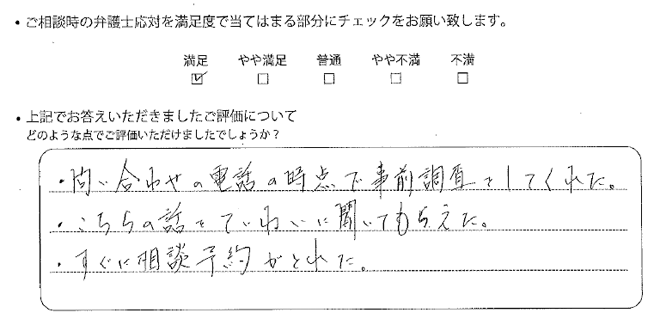 ・ご相談時の弁護士応対を満足度で当てはまる部分にチェックをお願い致します。
満足 やや満足 普通 やや不満 不満
☑ □ □ □ □
・上記でお答えいただきましたご評価について
どのような点でご評価いただけましたでしょうか？
・問い合わせの電話の時点で事前調査をしてくれた。
・こちらの話をていねいに聞いてもらえた。
・すぐに相談予約がとれた。